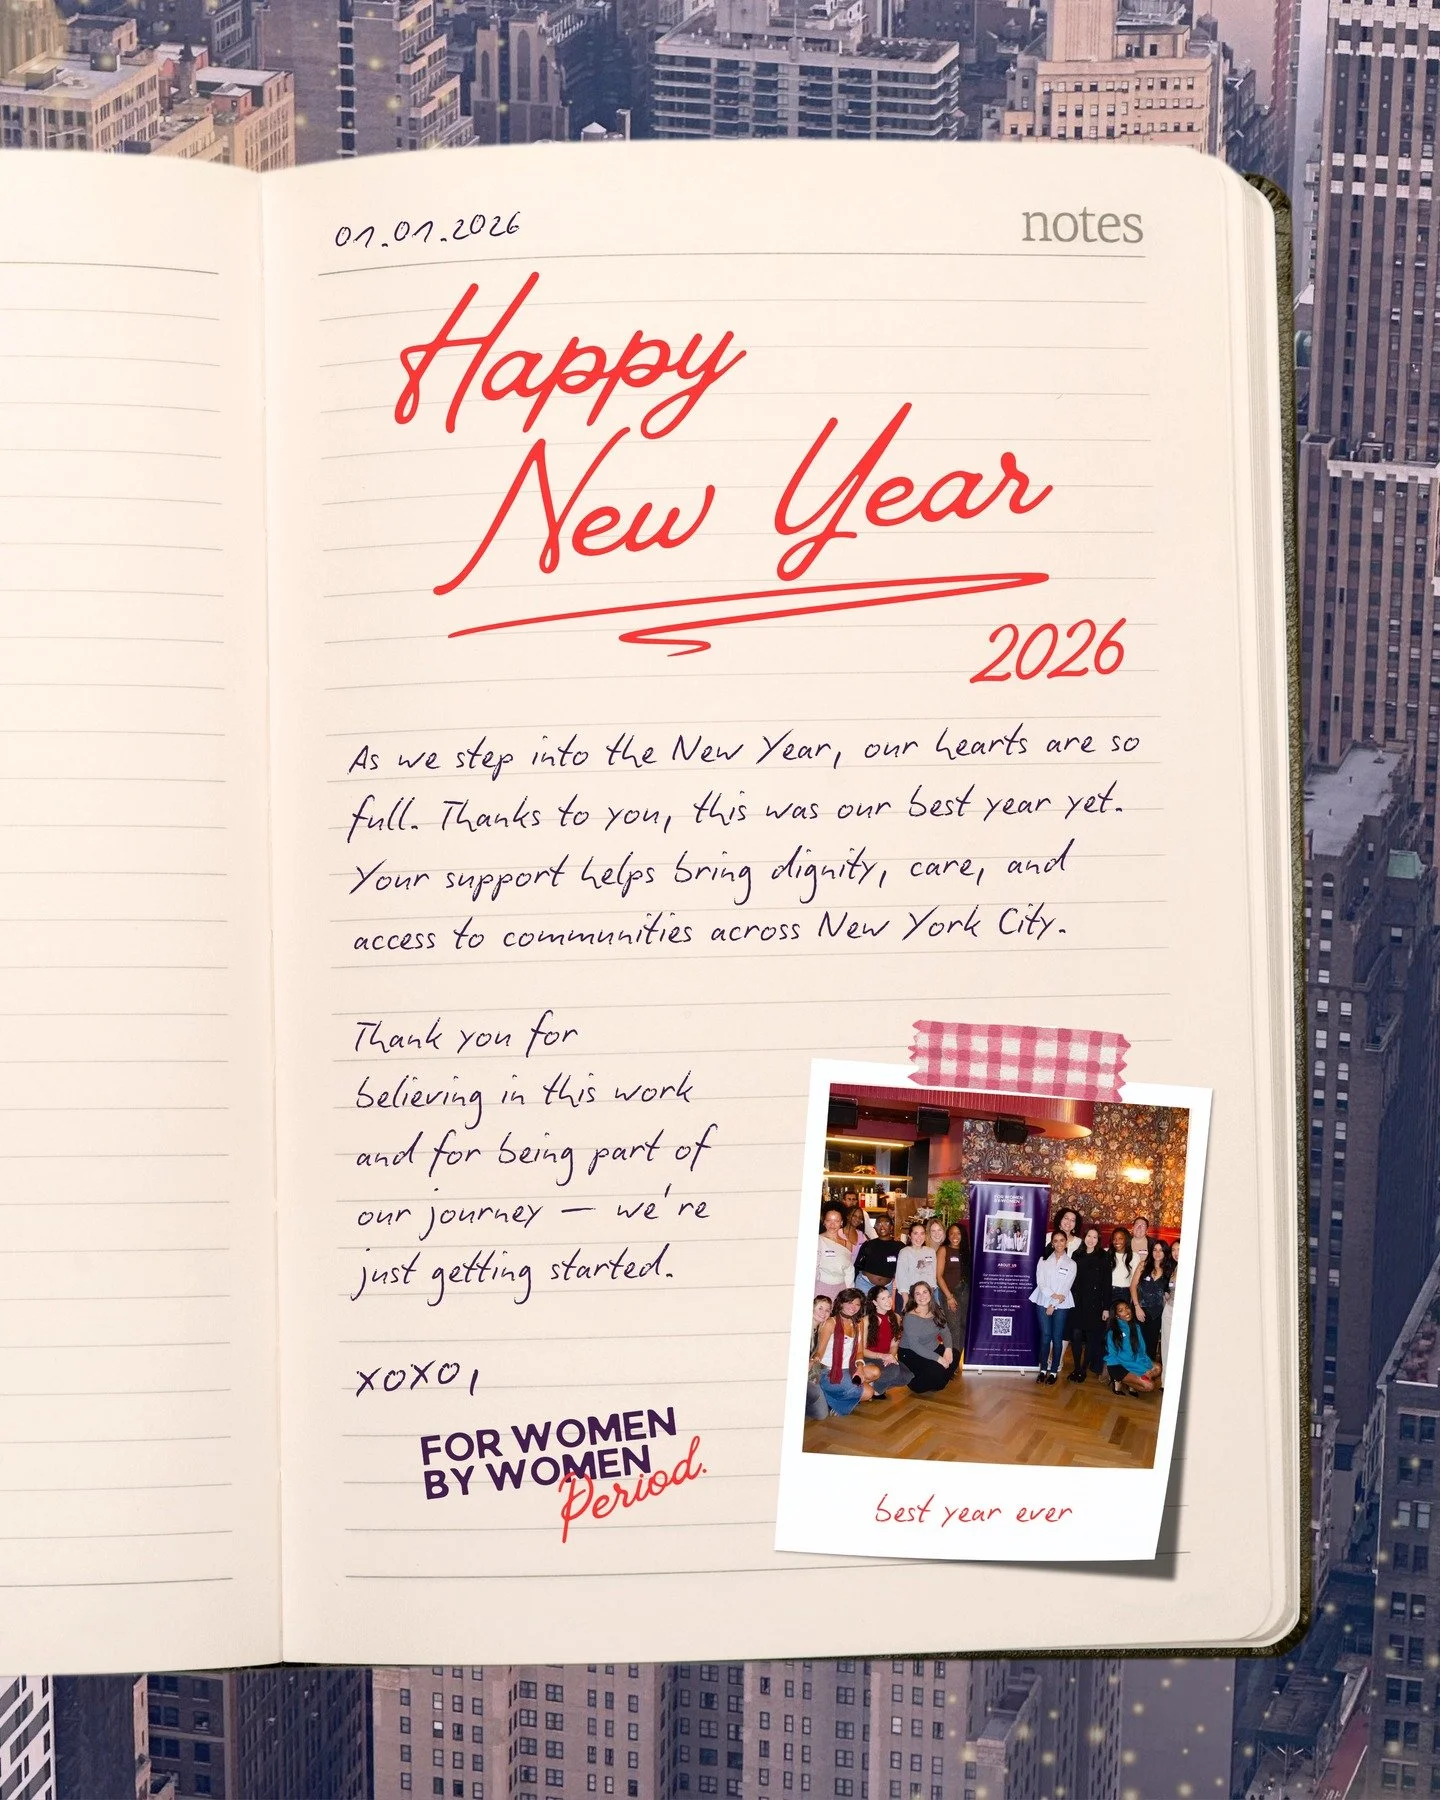 01.01.2026
notes
Happy
New Year
2026
As we step into the New Year, our hearts are so
full. Thanks to you, this was our best year yet.
Your support helps bring dignity, care, and
access to communities across New York City.
Thank you for
believing in this work
and for being part of
our journey — we're
just getting started.
xoxo,
FOR WOMEN
BY WOMEN
Period.
FOR WOMEN
BY WOMEN
ABOUT US
best year ever